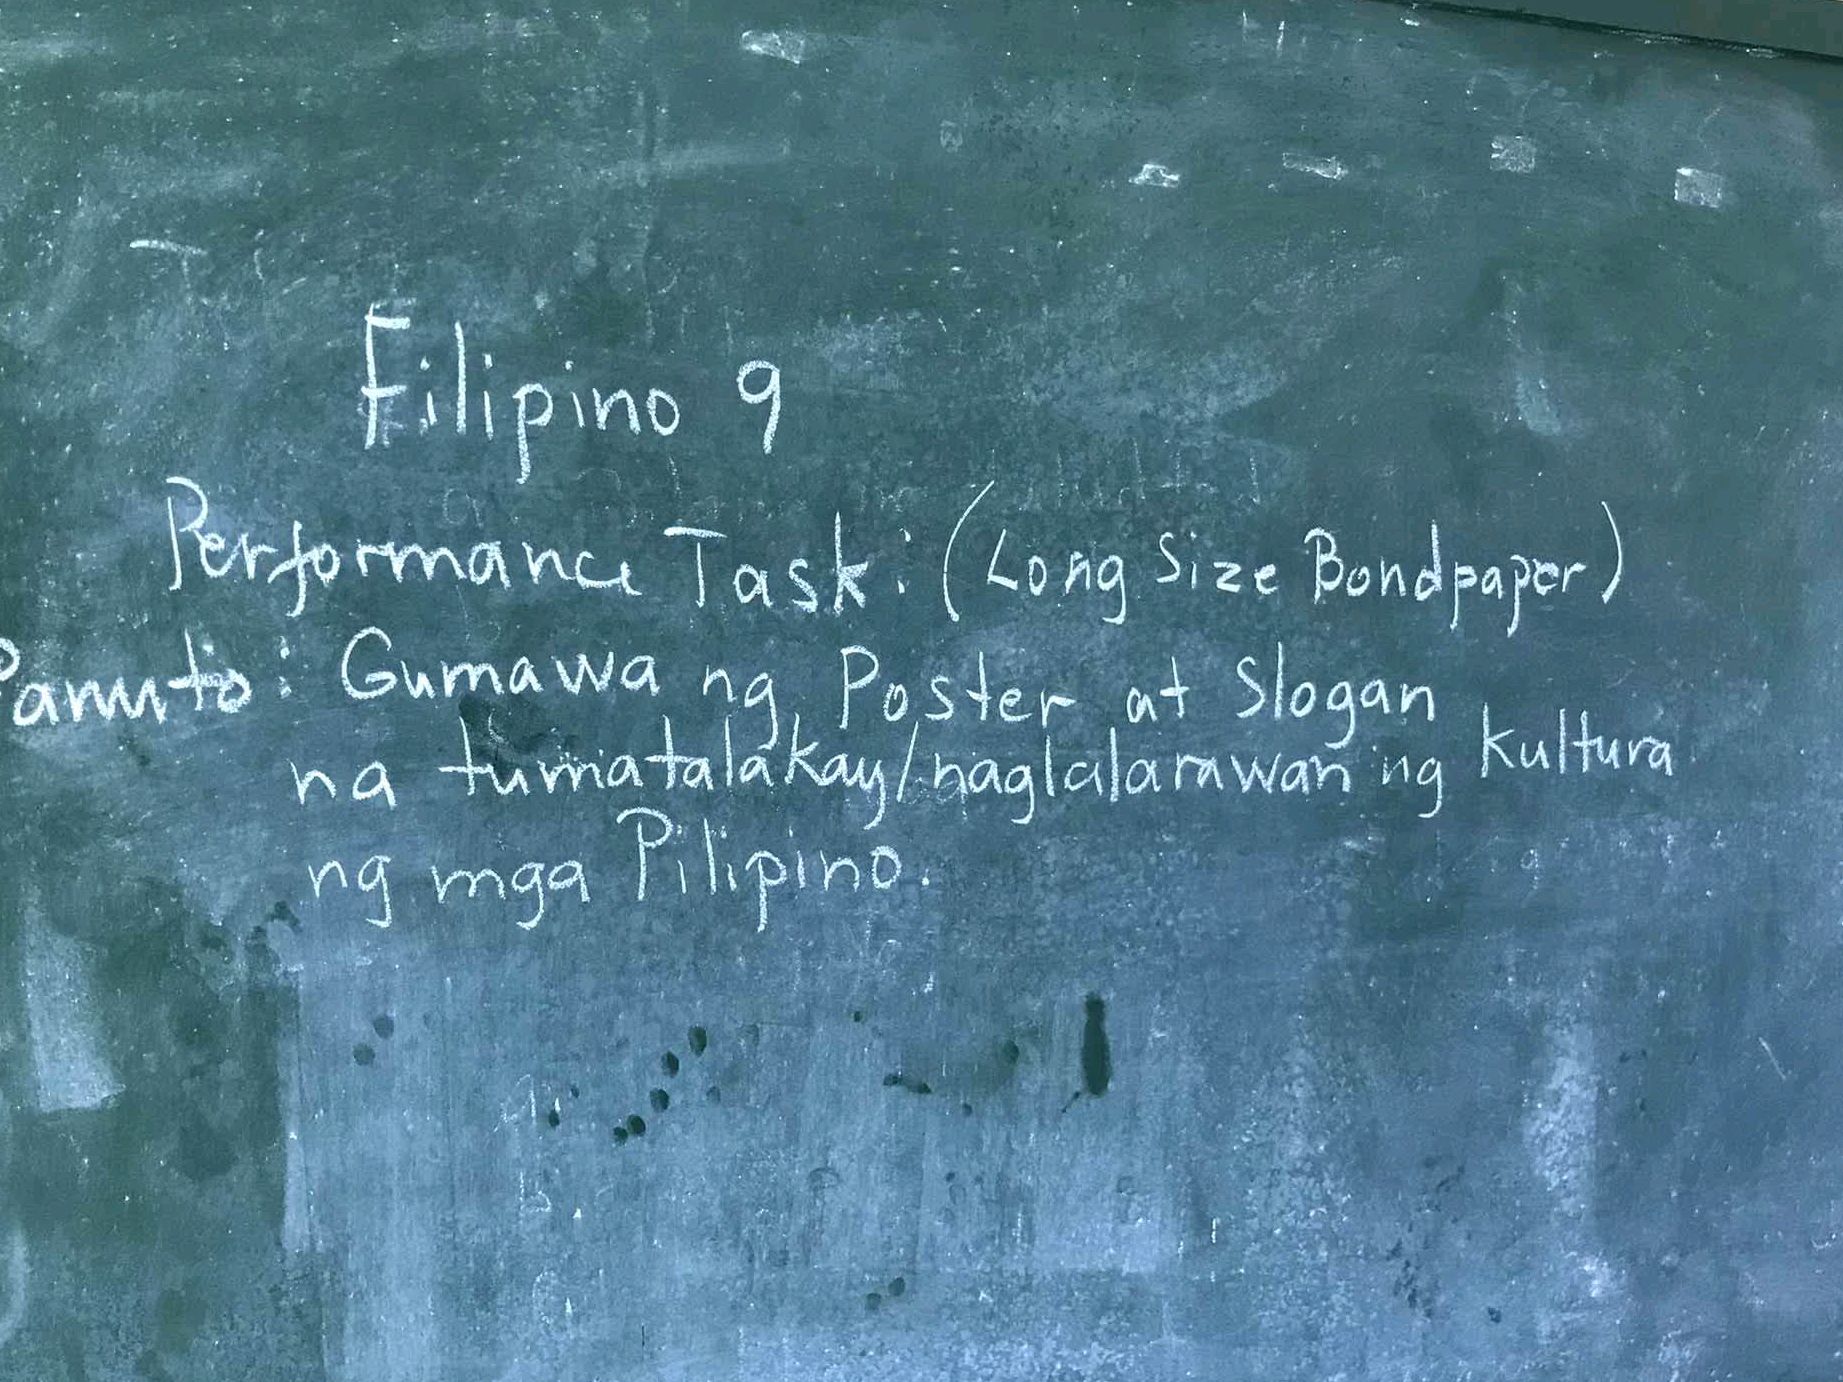 Filipino 9
Performance Task: (Long Size Bondpaper)
Panuto: Gumawa ng Poster at Slogan
na tumatalakay/naglalarawan ng kultura
ng mga Pilipino.